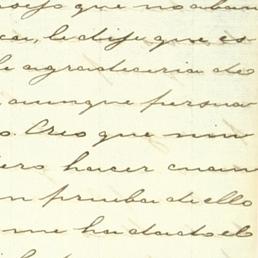 sejo que no aban
ca, le dije que es
le agradeceria do
aunque persua
o. Creo que nin
ero hacer cuan
n prueba de ello
me ha dado el